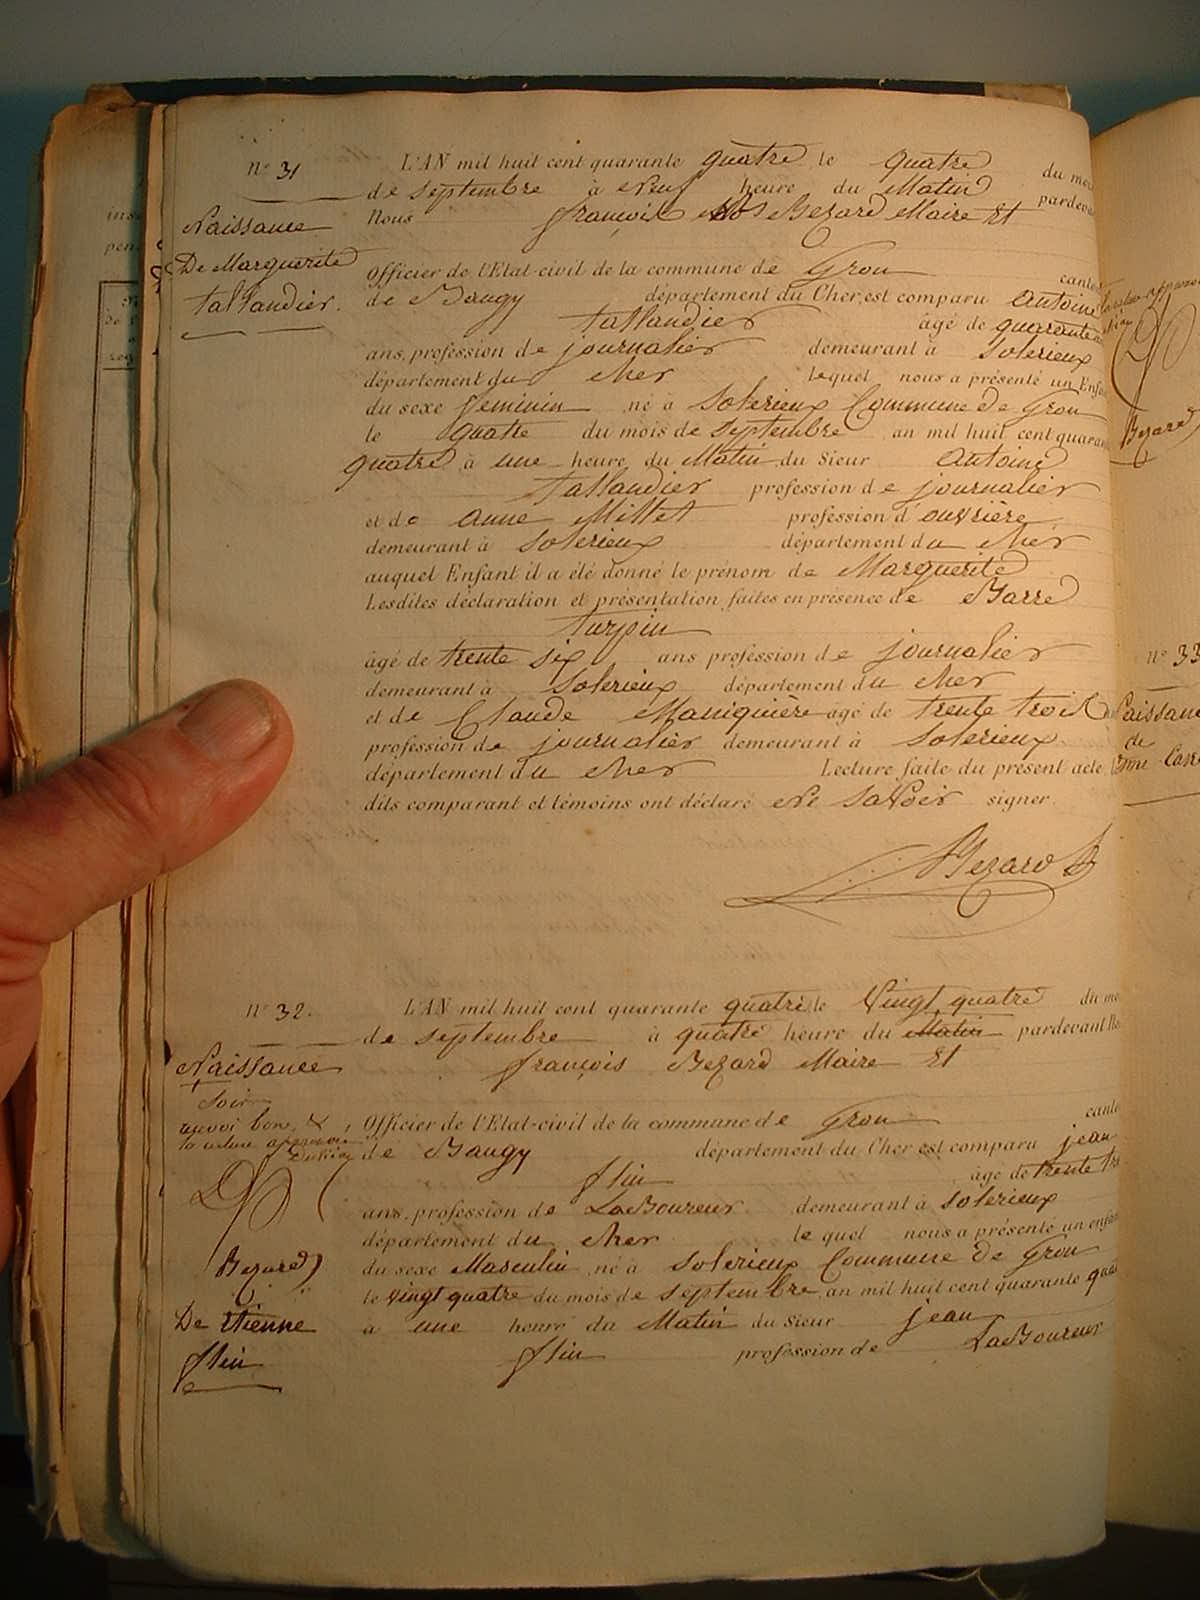 n° 31
Naissance
De Marguerite
tallandier.
L'AN mil huit cent quarante quatre le quatre du mois
de septembre à neuf heure du Matin pardevant
Nous françois Bezard Maire Et
Officier de l'Etat-civil de la commune de Gron canton
de Baugy département du Cher, est comparu Antoine
tallandier âgé de quarante
ans, profession de journalier demeurant à Solerieux
département du cher lequel nous a présenté un Enfant
du sexe feminin né à Solerieux Commune de Gron
le quatre du mois de septembre an mil huit cent quarante
quatre à une heure du Matin du Sieur Antoine
tallandier profession de journalier
et de anne Millet profession d'ouvrière
demeurant à Solerieux département du cher
auquel Enfant il a été donné le prénom de Marguerite
Lesdites déclaration et présentation faites en présence de Barre
turpin
âgé de trente six ans profession de journalier
demeurant à Solerieux département du cher
et de Claude Maniquière âgé de trente trois
profession de journalier demeurant à Solerieux
département du cher Lecture faite du présent acte
dits comparant et témoins ont déclaré ne savoir signer
Bezard
n° 32.
Naissance
soir
renvoi bon &
la rature approuvée
Bezard
De Etienne
flin
L'AN mil huit cent quarante quatre le Vingt quatre du mois
de septembre à quatre heure du Matin pardevant Nous
françois Bezard Maire Et
Officier de l'Etat-civil de la commune de Gron canton
de Baugy département du Cher est comparu jean
flin âgé de trente
ans, profession de LaBoureur demeurant à Solerieux
département du cher lequel nous a présenté un enfant
du sexe Masculin né à Solerieux Commune de Gron
le vingt quatre du mois de septembre an mil huit cent quarante
à une heure du Matin du Sieur jean
flin profession de LaBoureur
Bezard
n° 33
Naissance
de